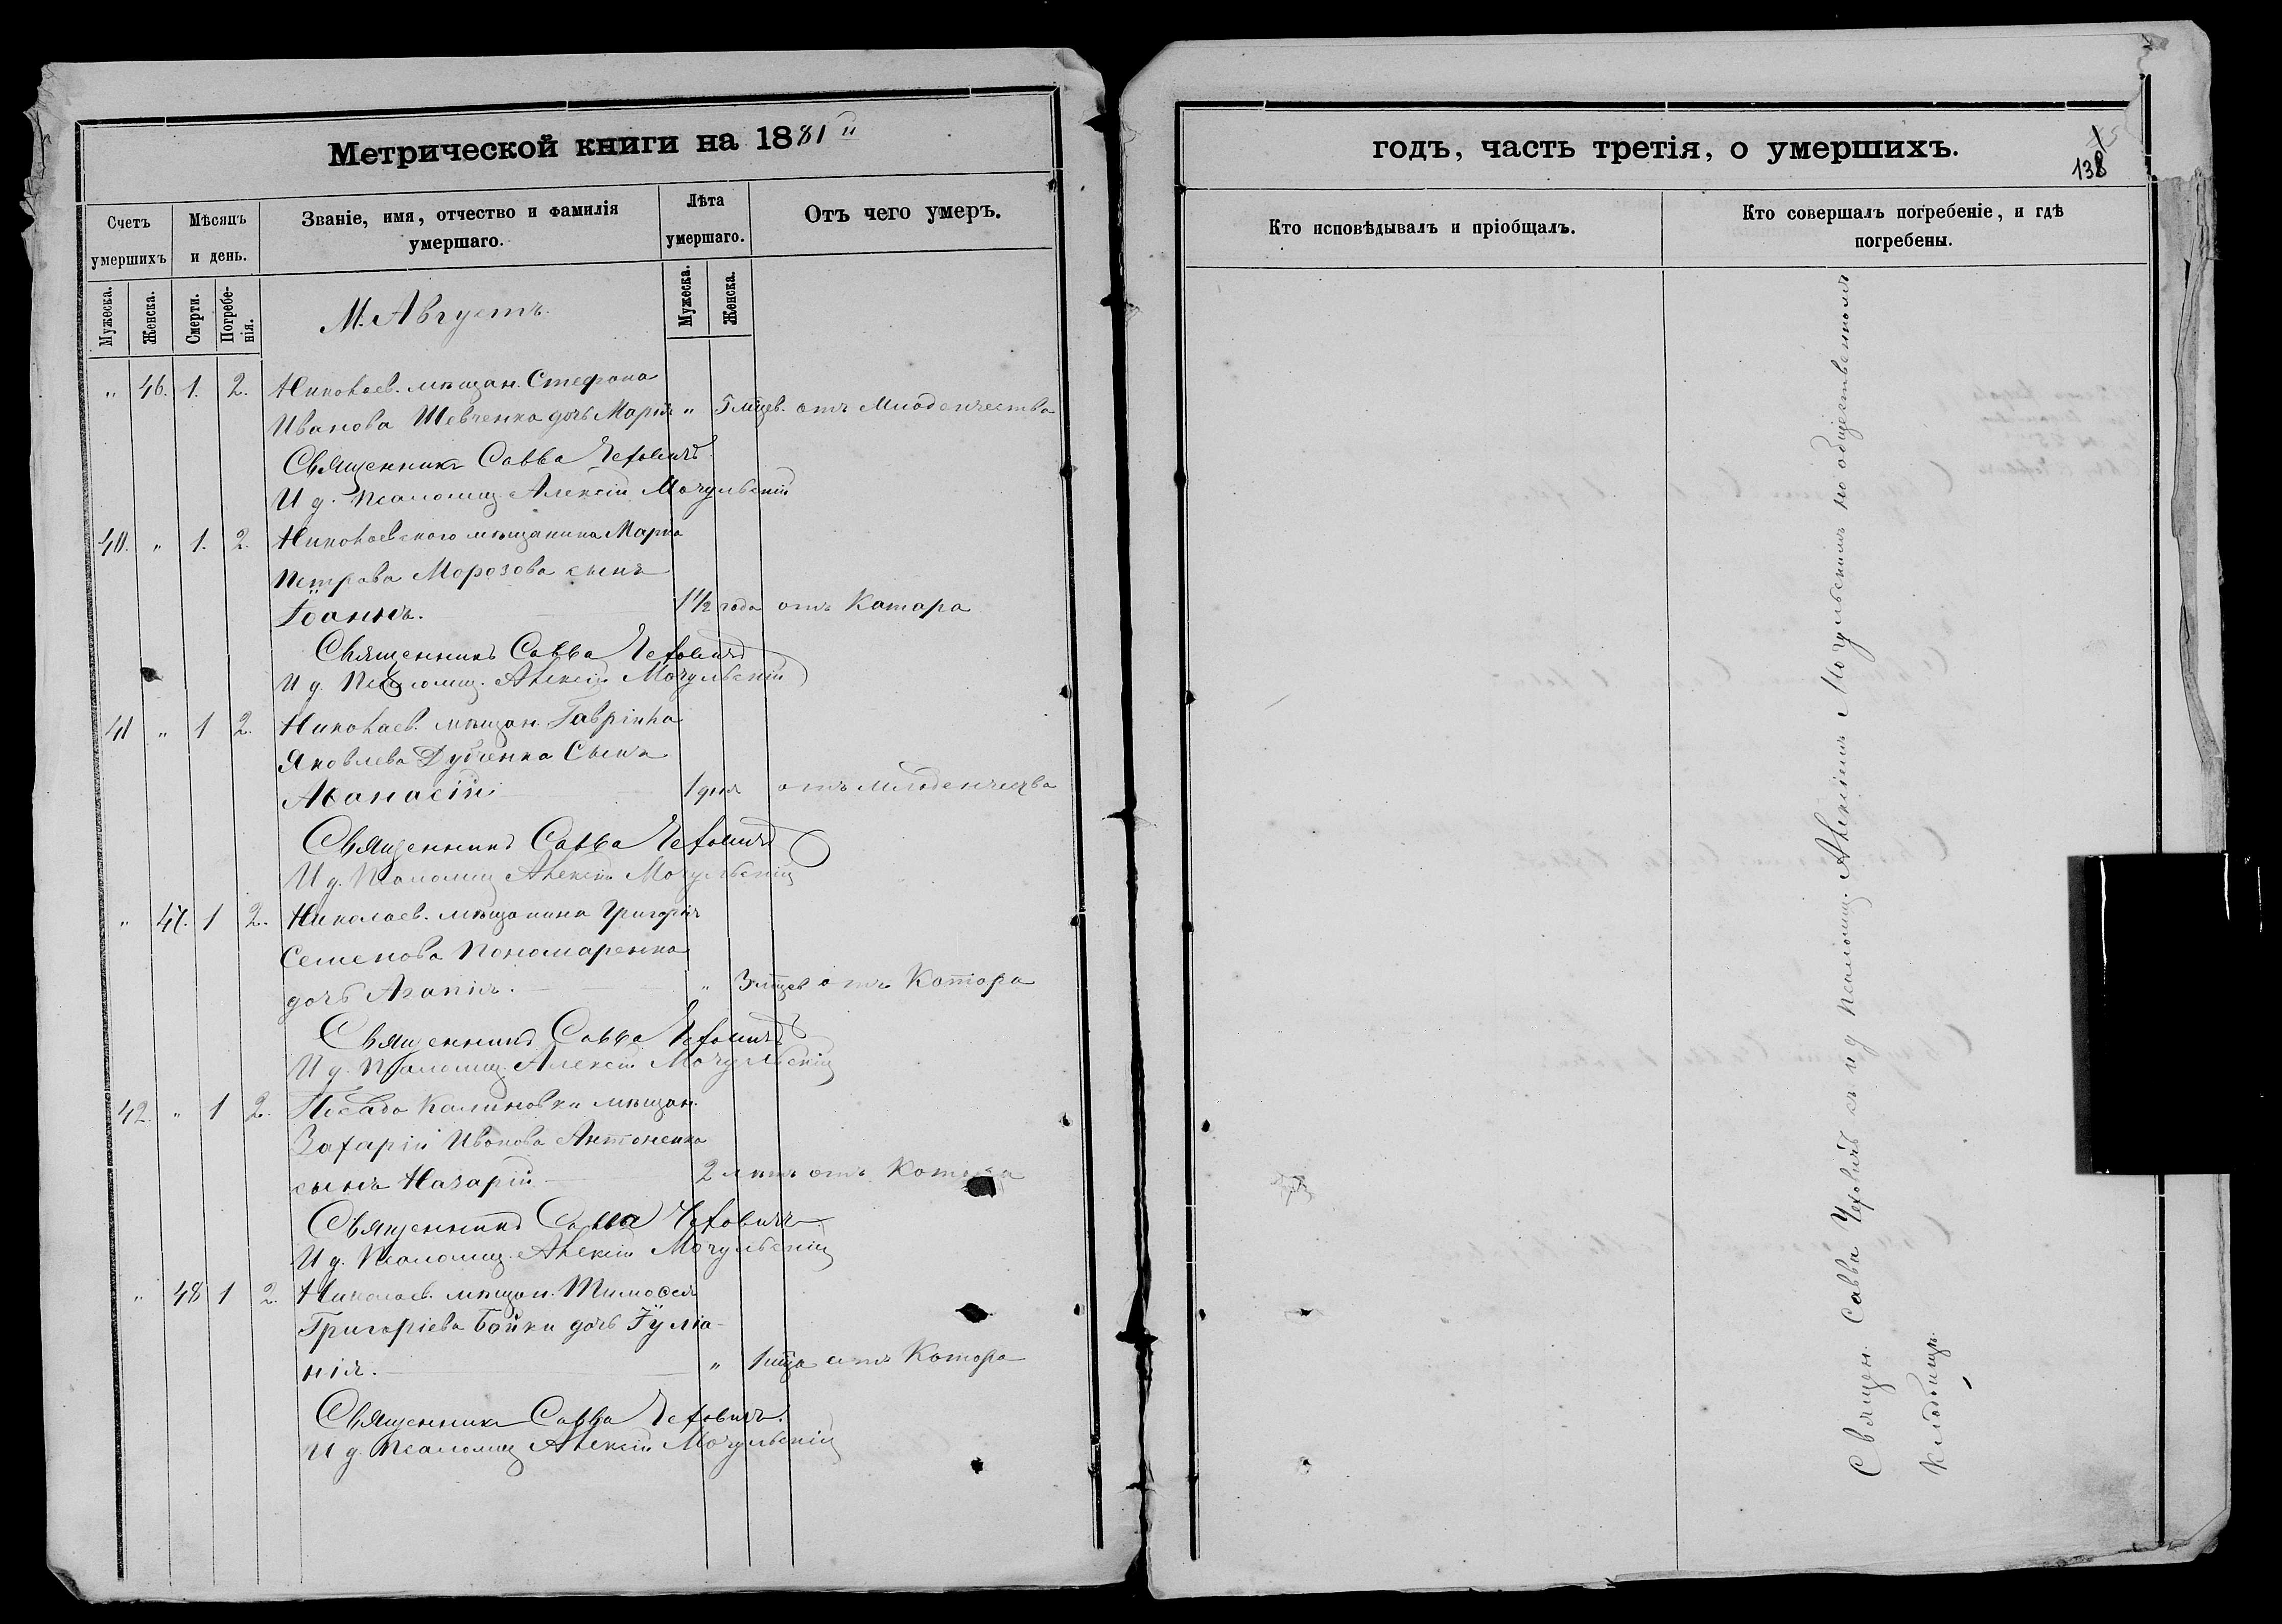 Метрической книги на 1881й
Счетъ умершихъ
Мѣсяцъ и день.
Званіе, имя, отчество и фамилія умершаго.
Лѣта умершаго.
Отъ чего умеръ.
Мужеска.
Женска.
Смерти.
Погребенія.
М. Августъ.
Мужеска.
Женска.
" 46. 1. 2. Николаев. мѣщан. Стефана
Иванова Шевченка дочь Марія " 5 мцев. отъ Младенчества
Священникъ Савва Чеховичъ
И д. Псаломщ. Алексій Мочульскій
40. " 1. 2. Николаевского мѣщанина Марка
Петрова Морозова сынъ
Іоаннъ. 1 1/2 года отъ Катара
Священникъ Савва Чеховичъ
И д. Псаломщ. Алексій Мочульскій
41 " 1 2. Николаев. мѣщан. Гавріила
Яковлева Дубченка Сынъ
Аѳанасій 1 дня отъ младенчества
Священникъ Савва Чеховичъ
И д. Псаломщ Алексій Мочульскій
" 47. 1 2. Николаев. мѣщанина Григорія
Семенова Пономаренка
дочь Агапія. " 3 мцев отъ Катара
Священникъ Савва Чеховичъ
И д. Псаломщ. Алексій Мочульскій
42. " 1 2. Посада Калиновки мѣщан.
Захарій Иванова Антоненка
сынъ Назарій 2 лѣтъ отъ Катара
Священникъ Савва Чеховичъ
И д. Псаломщ. Алексій Мочульскій
" 48 1 2. Николаев. мѣщан. Тимоѳея
Григоріева Бойки дочь Іуліа-
нія. " 1 мца отъ Катара
Священникъ Савва Чеховичъ.
И д. Псаломщ Алексій Мочульскій
годъ, часть третія, о умершихъ.
138
Кто исповѣдывалъ и пріобщалъ.
Кто совершалъ погребеніе, и гдѣ погребены.
Священ. Савва Чеховичъ съ и д псаломщ. Алексіемъ Мочульскимъ на общественномъ
кладбищѣ.